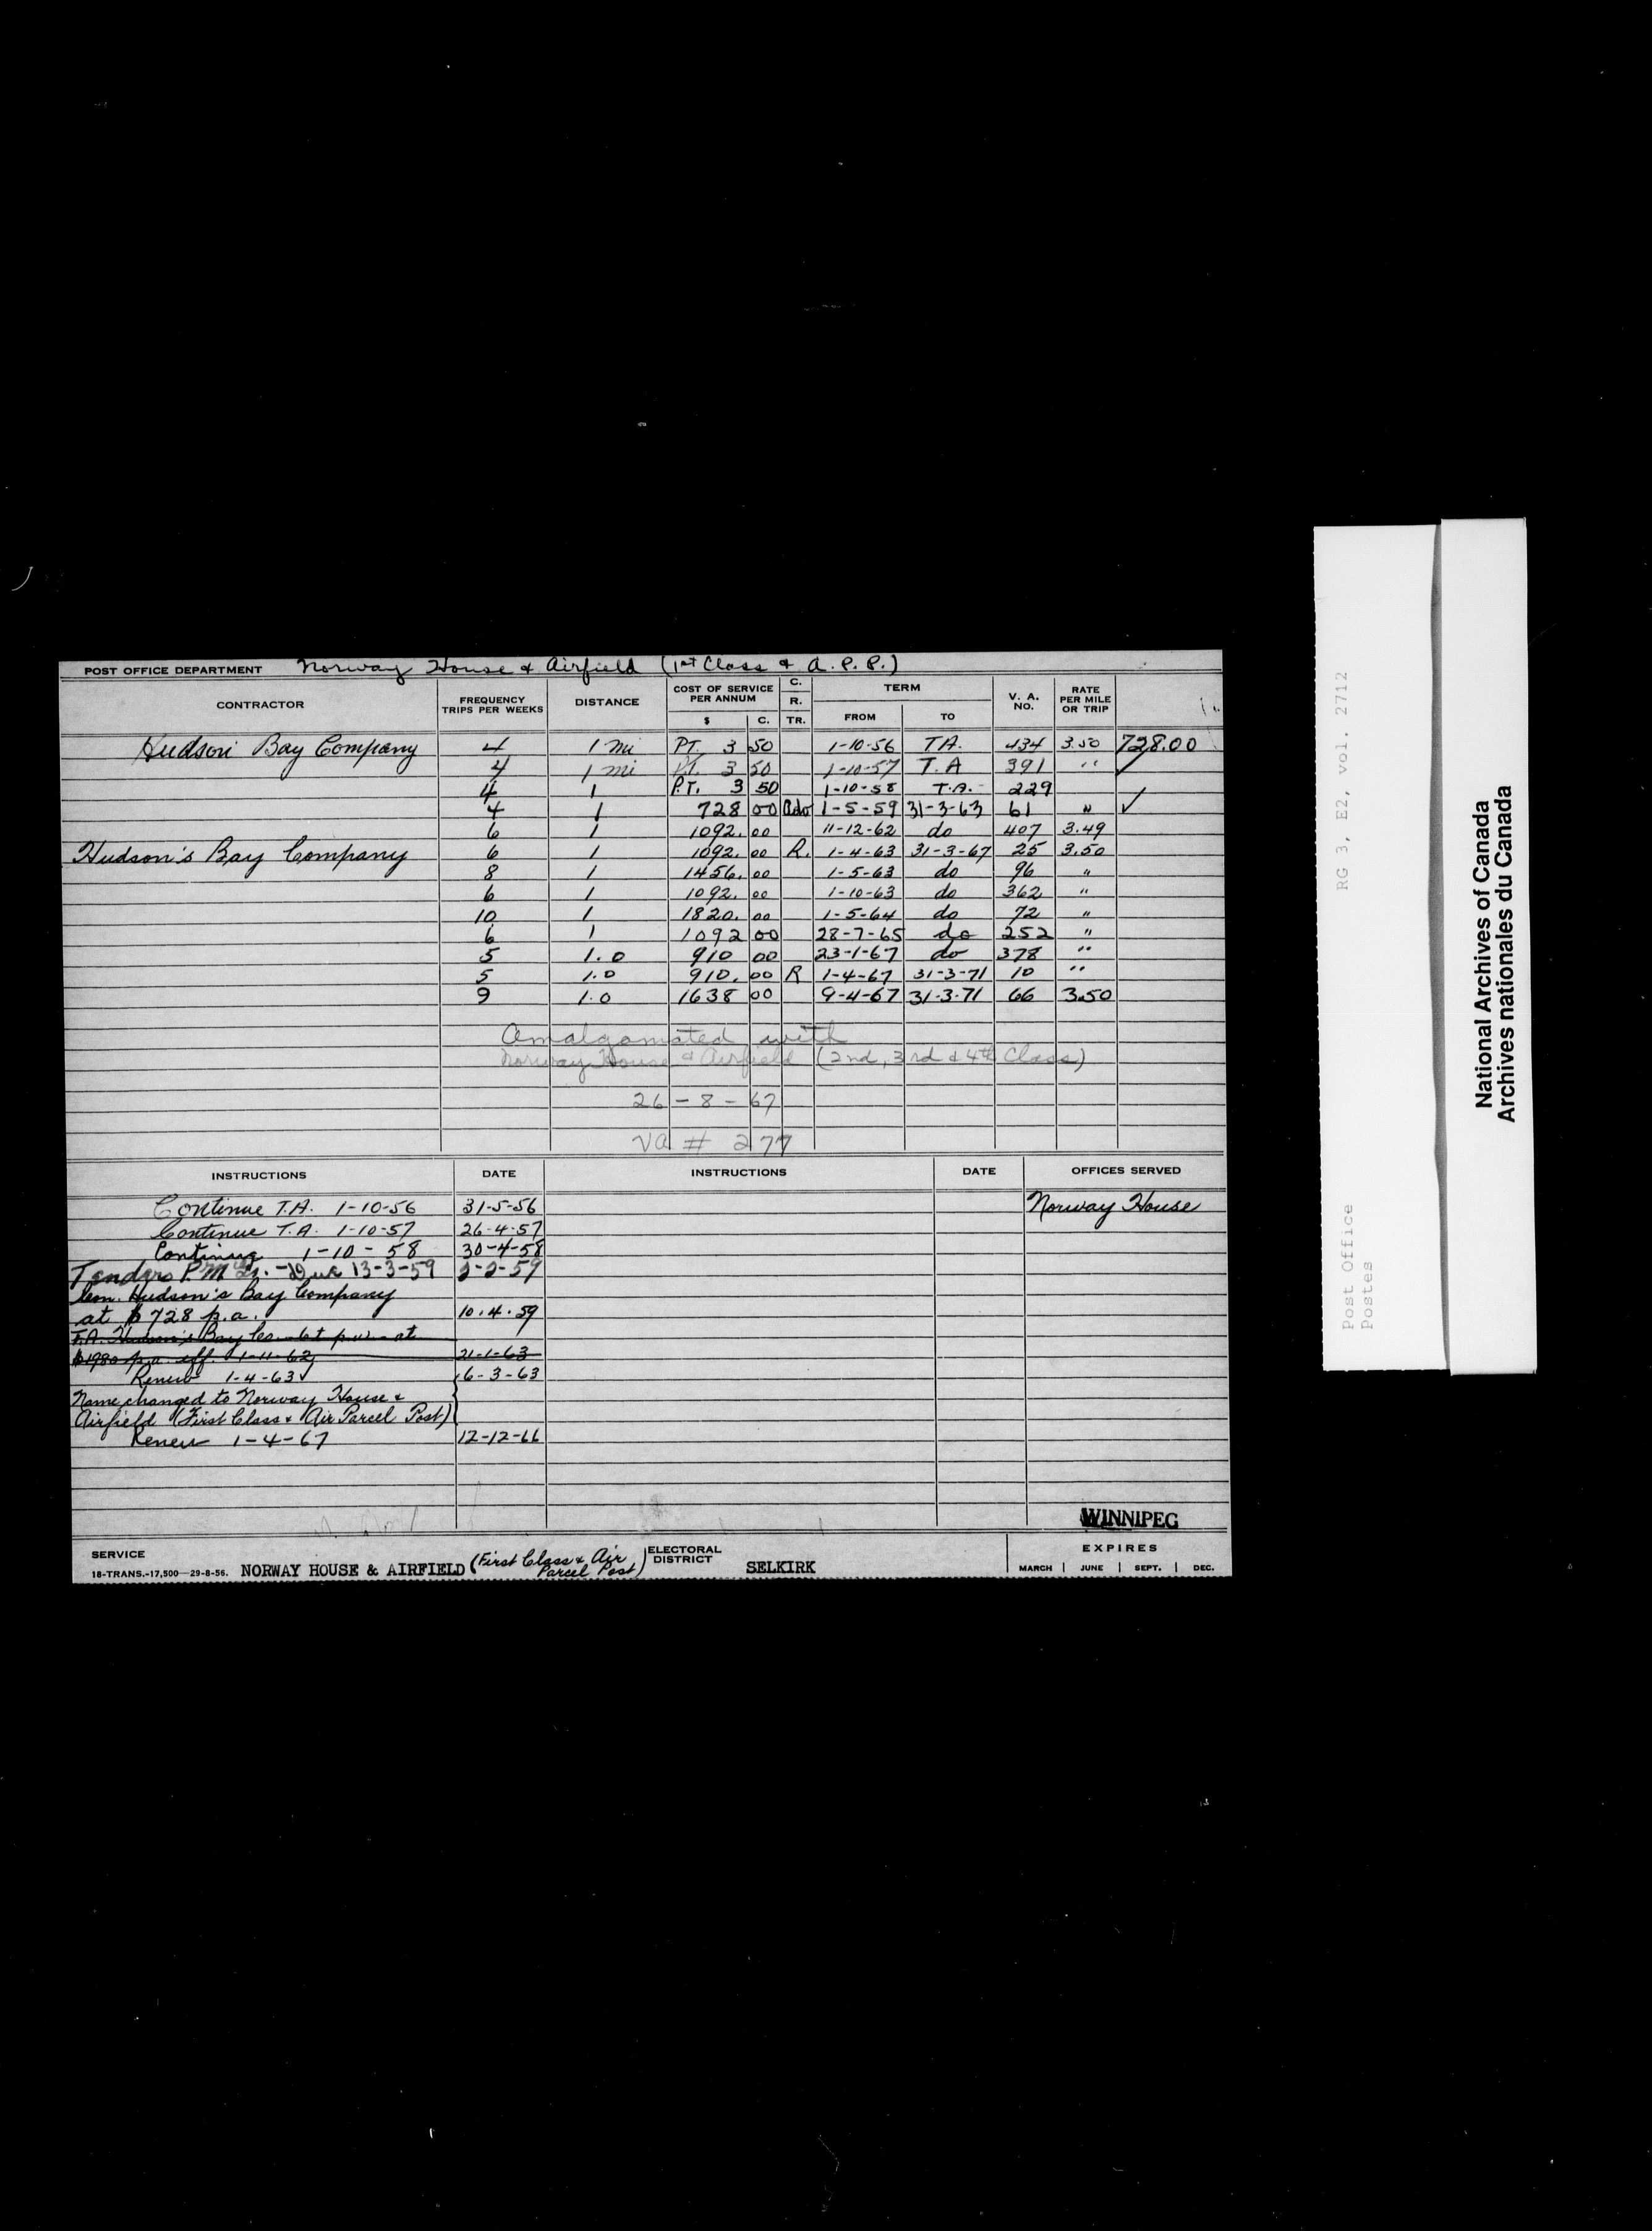 POST OFFICE DEPARTMENT Norway House & Airfield (1st Class & A.P.P.)
CONTRACTOR FREQUENCY TRIPS PER WEEKS DISTANCE COST OF SERVICE PER ANNUM $ C. C. R. TR. TERM FROM TO V. A. NO. RATE PER MILE OR TRIP
Hudson Bay Company 4 1 mi PT. 3 50 1-10-56 T.A. 434 3.50 728.00
4 1 mi P.T. 3 50 1-10-57 T.A 391 " ✓
4 1 P.T. 3 50 1-10-58 T.A. 229
4 1 728 00 Adv 1-5-59 31-3-63 61 " ✓
6 1 1092. 00 11-12-62 do 407 3.49
Hudson's Bay Company 6 1 1092. 00 R. 1-4-63 31-3-67 25 3.50
8 1 1456. 00 1-5-63 do 96 "
6 1 1092. 00 1-10-63 do 362 "
10 1 1820. 00 1-5-64 do 72 "
6 1 1092 00 28-7-65 do 252 "
5 1.0 910 00 23-1-67 do 378 "
5 1.0 910. 00 R 1-4-67 31-3-71 10 "
9 1.0 1638 00 9-4-67 31-3-71 66 3.50
Amalgamated with
Norway House & Airfield (2nd, 3rd & 4th Class)
26-8-67
VA # 277
INSTRUCTIONS DATE INSTRUCTIONS DATE OFFICES SERVED
Continue T.A. 1-10-56 31-5-56 Norway House
Continue T.A. 1-10-57 26-4-57
Continue 1-10-58 30-4-58
Tenders P.M. - Due 13-3-59 2-2-59
Con. Hudson's Bay Company
at $728 p.a. 10.4.59
T.A. Hudson's Bay Co. 6t p.w. at
$1980 p.a. eff. 1-11-62 21-1-63
Renew 1-4-63 6-3-63
Name changed to Norway House &
Airfield (First Class & Air Parcel Post)
Renew 1-4-67 12-12-66
WINNIPEG
SERVICE NORWAY HOUSE & AIRFIELD (First Class & Air Parcel Post) ELECTORAL DISTRICT SELKIRK EXPIRES
18-TRANS.-17,500-29-8-56. MARCH JUNE SEPT. DEC.
RG 3, E2, vol. 2712
Post Office
Postes
National Archives of Canada
Archives nationales du Canada